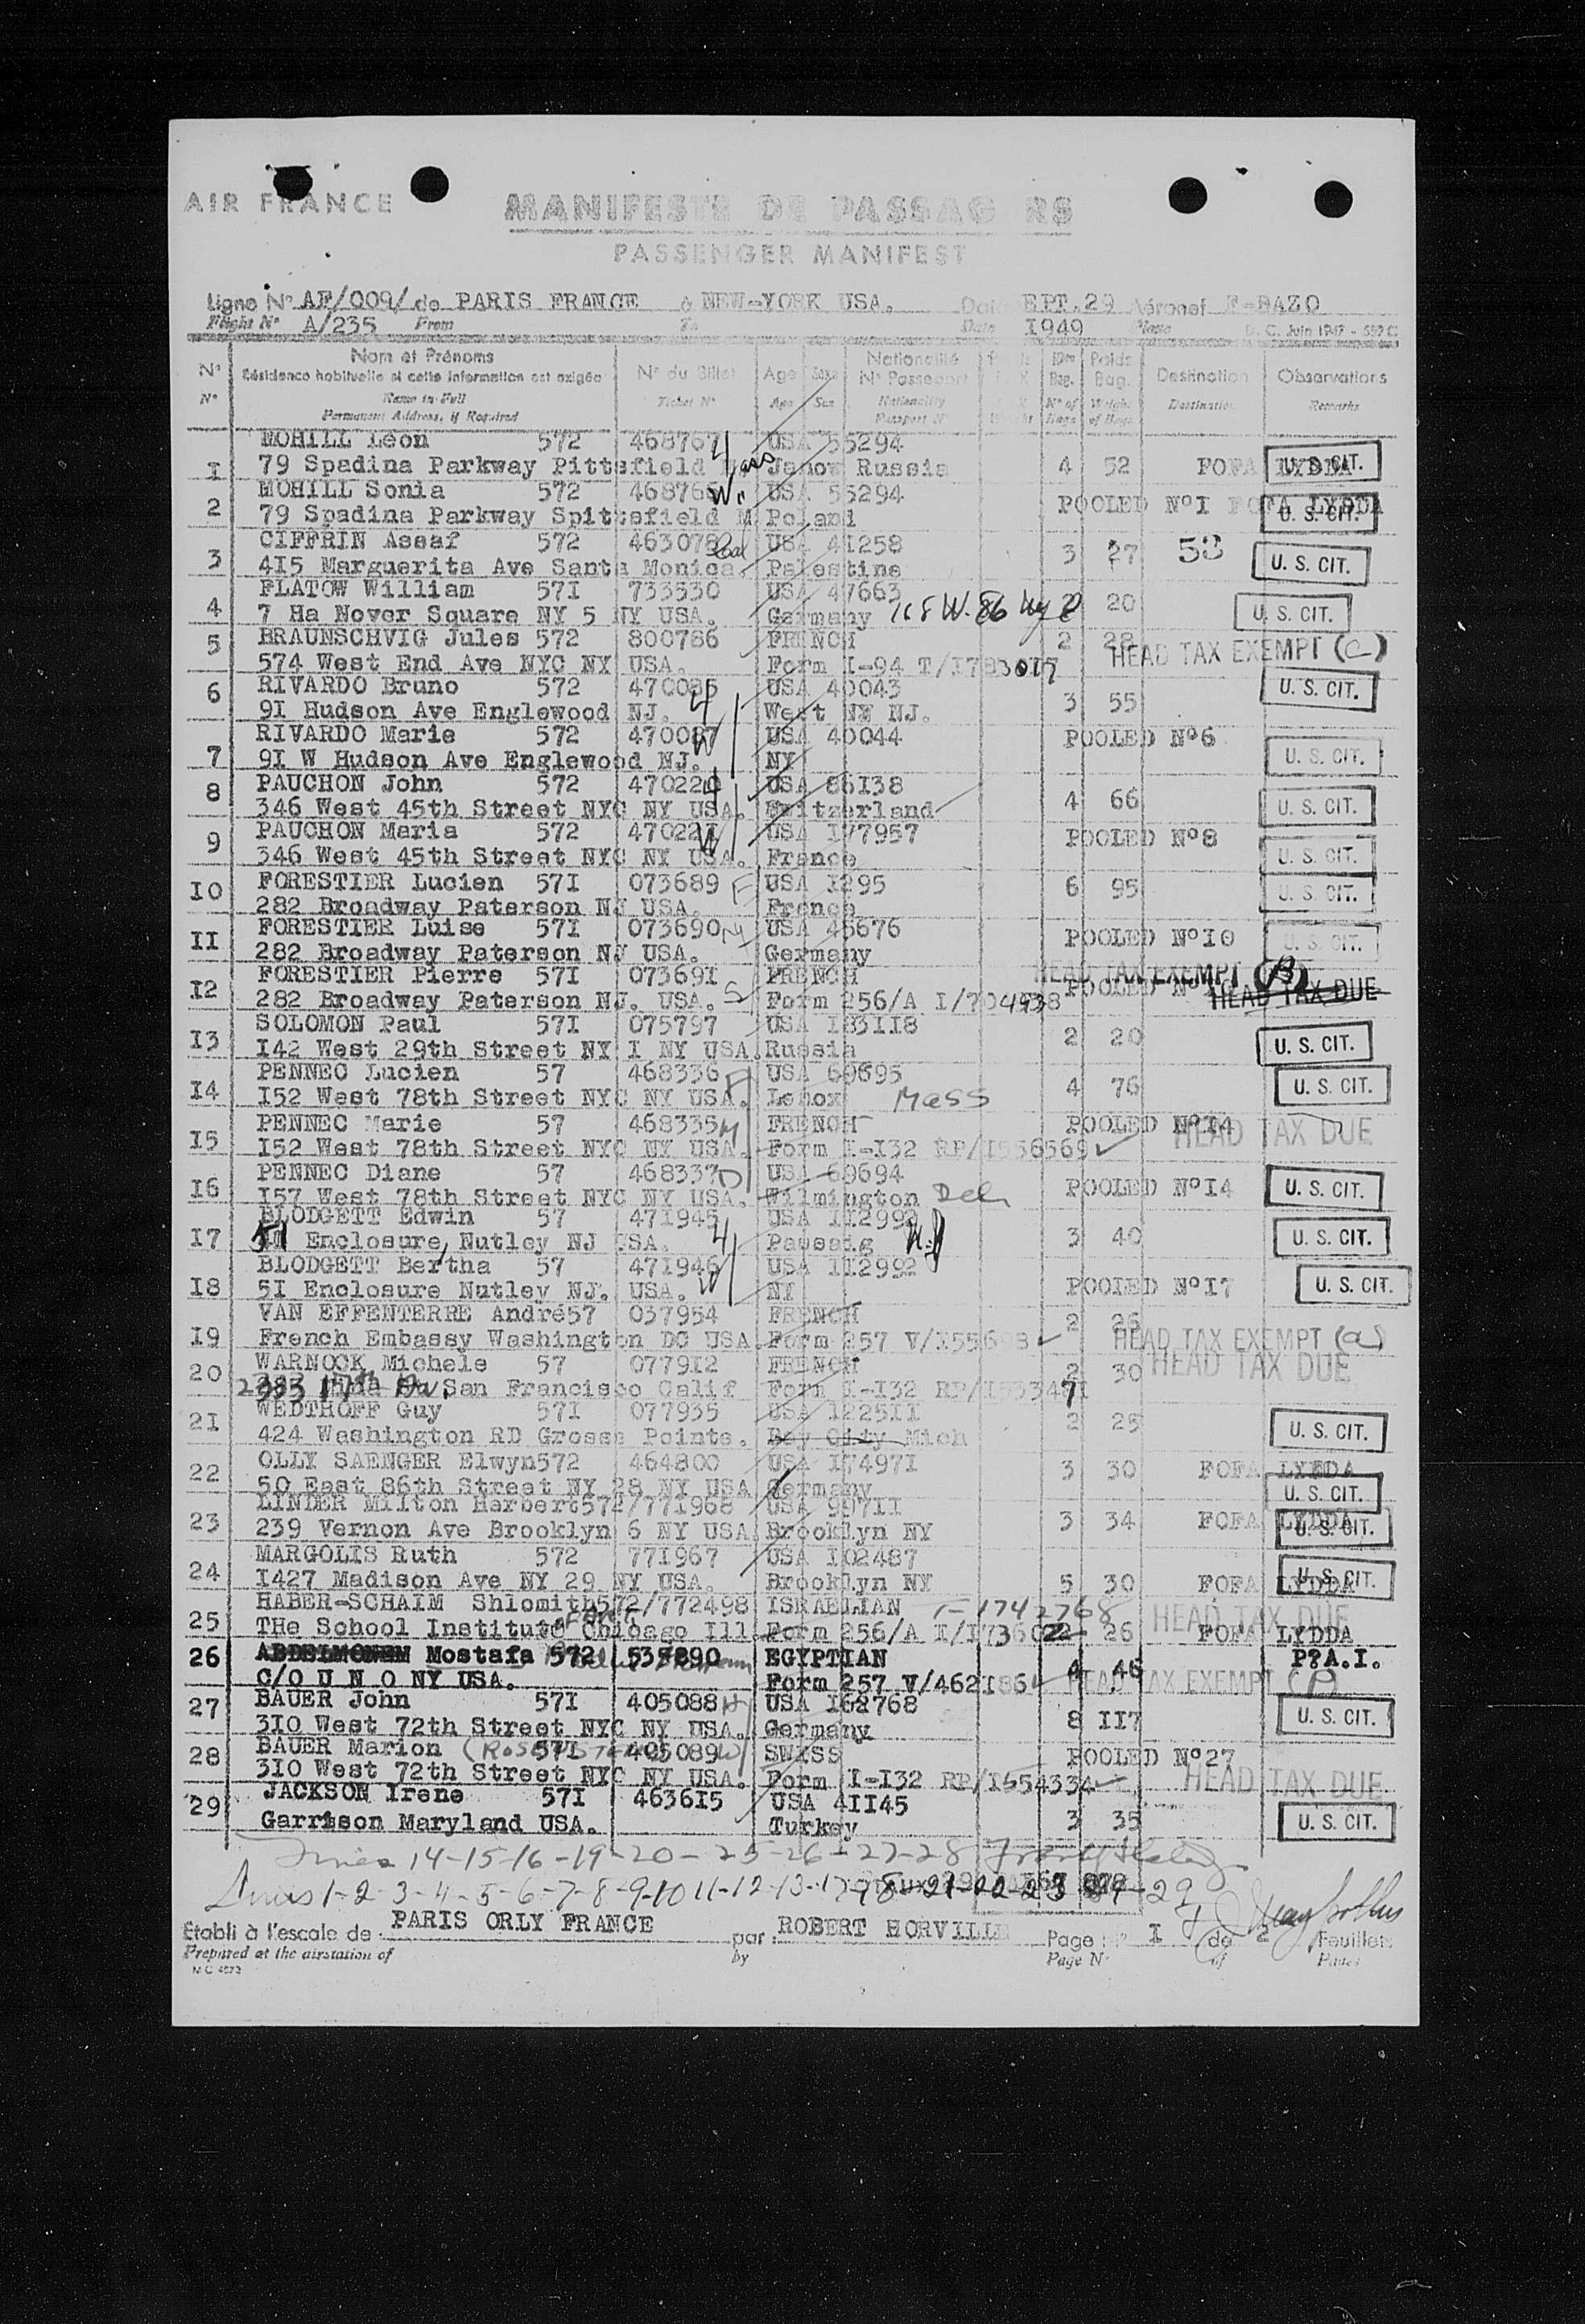 AIR FRANCE
MANIFESTE DE PASSAG RS
PASSENGER MANIFEST
Ligne N° AF/009/ de PARIS FRANCE à NEW-YORK USA. Dat EPT.29 Aéronef F-BAZO
Flight N° A/235 From To Date 1949 Plane D. C. Juin 1947 - 559 C
N° Nom et Prénoms N° du Billet Age Sexe Nationalité Nbre Poids Destination Observations
Résidence habituelle si cette information est exigée N° Passeport Bag. Bag.
N° Name in Full Ticket N° Age Sex Nationality N° of Weight Destination Remarks
Permanent Address, if Required Passport N° Bags of Bags
MOHILL Léon 572 468767 USA 55294
1 79 Spadina Parkway Pittsfield Mass Janow Russia 4 52 FOFA LYDDA U. S. CIT.
MOHILL Sonia 572 468766 W. USA 55294
2 79 Spadina Parkway Spittsfield M Poland POOLED N°I FOFA LYDDA U. S. CIT.
CIFFRIN Assaf 572 463078 Cal USA 41258
3 415 Marguerita Ave Santa Monica. Palestine 3 27 53 U. S. CIT.
FLATOW William 571 733530 USA 47663
4 7 Ha Nover Square NY 5 NY USA. Germany 168 W. 86 Ny 20 U. S. CIT.
5 BRAUNSCHVIG Jules 572 800786 FRENCH 2 28
574 West End Ave NYC NY USA. Form I-94 T/I783017 HEAD TAX EXEMPT (C)
6 RIVARDO Bruno 572 470086 USA 40043
91 Hudson Ave Englewood NJ. H West NY NJ. 3 55 U. S. CIT.
RIVARDO Marie 572 470087 W USA 40044 POOLED N°6
7 91 W Hudson Ave Englewood NJ. NY U. S. CIT.
8 PAUCHON John 572 470220 USA 86138
346 West 45th Street NYC NY USA. Switzerland 4 66 U. S. CIT.
9 PAUCHON Maria 572 470221 W USA 177957 POOLED N°8
346 West 45th Street NYC NY USA. France U. S. CIT.
10 FORESTIER Lucien 571 073689 F USA 1295 6 95
282 Broadway Paterson NJ USA. France U. S. CIT.
11 FORESTIER Luise 571 073690 M USA 45676 POOLED N°10
282 Broadway Paterson NJ USA. Germany U. S. CIT.
12 FORESTIER Pierre 571 073691 FRENCH HEAD TAX EXEMPT (B)
282 Broadway Paterson NJ. USA. S Form 256/A I/704938 POOLED N° HEAD TAX DUE
13 SOLOMON Paul 571 075797 USA 183118 2 20
142 West 29th Street NY I NY USA. Russia U. S. CIT.
14 PENNEC Lucien 57 468336 F USA 69695 4 76
152 West 78th Street NYC NY USA. Lenox Mass U. S. CIT.
15 PENNEC Marie 57 468335 M FRENCH POOLED N°14
152 West 78th Street NYC NY USA. Form I-132 RP/I556569 HEAD TAX DUE
16 PENNEC Diane 57 468337 D USA 69694
157 West 78th Street NYC NY USA. Wilmington Del POOLED N°14 U. S. CIT.
BLODGETT Edwin 57 471945 USA 112992
17 51 Enclosure, Nutley NJ USA. H Passaig N.J 3 40 U. S. CIT.
BLODGETT Bertha 57 471946 USA 112992
18 51 Enclosure Nutley NJ. USA. W NY POOIED N°17 U. S. CIT.
VAN EFFENTERRE André57 037954 FRENCH 2 26
19 French Embassy Washington DC USA. Form 257 V/I55698 HEAD TAX EXEMPT (a)
20 WARNOCK Michele 57 077912 FRENCH 2 30 HEAD TAX DUE
17th Av. San Francisco Calif Form I-132 RP/I553471
21 WEDTHOFF Guy 571 077935 USA 122511 2 25
424 Washington RD Grosse Pointe. Bay City Mich U. S. CIT.
OLLY SAENGER Elwyn572 464800 USA 174971
22 50 East 86th Street NY 28 NY USA Germany 3 30 FOFA LYDDA U. S. CIT.
LINDER Milton Herbert572/771968 USA 99711
23 239 Vernon Ave Brooklyn 6 NY USA Brooklyn NY 3 34 FOFA LYDDA U. S. CIT.
MARGOLIS Ruth 572 771967 USA 102487
24 1427 Madison Ave NY 29 NY USA. Brooklyn NY 5 30 FOFA LYDDA U. S. CIT.
HABER-SCHAIM Shlomith572/772498 ISRAELIAN T-1742768
25 THe School Institute Chicago Ill. Form 256/A I/I736022 26 FOFA LYDDA HEAD TAX DUE
26 ABDELMONEM Mostafa 572 535890 EGYPTIAN 4 46 P?A.I.
C/O U N O NY USA. Form 257 V/4621864 HEAD TAX EXEMPT
27 BAUER John 571 405088 H USA 162768
310 West 72th Street NYC NY USA. Germany 8 117 U. S. CIT.
28 BAUER Marion 571 405089 W SWISS POOLED N°27
310 West 72th Street NYC NY USA. Form I-132 RP/I554334 HEAD TAX DUE
29 JACKSON Irene 571 463615 USA 41145
Garrison Maryland USA. Turkey 3 35 U. S. CIT.
Lines 14-15-16-19-20-25-26-27-28
Lines 1-2-3-4-5-6-7-8-9-10 11-12-13-17-18-21-22-23 24-29
Etabli à l'escale de PARIS ORLY FRANCE par ROBERT HORVILLE Page N° I de 2 Feuillets
Prepared at the airstation of by Page N° of Pages